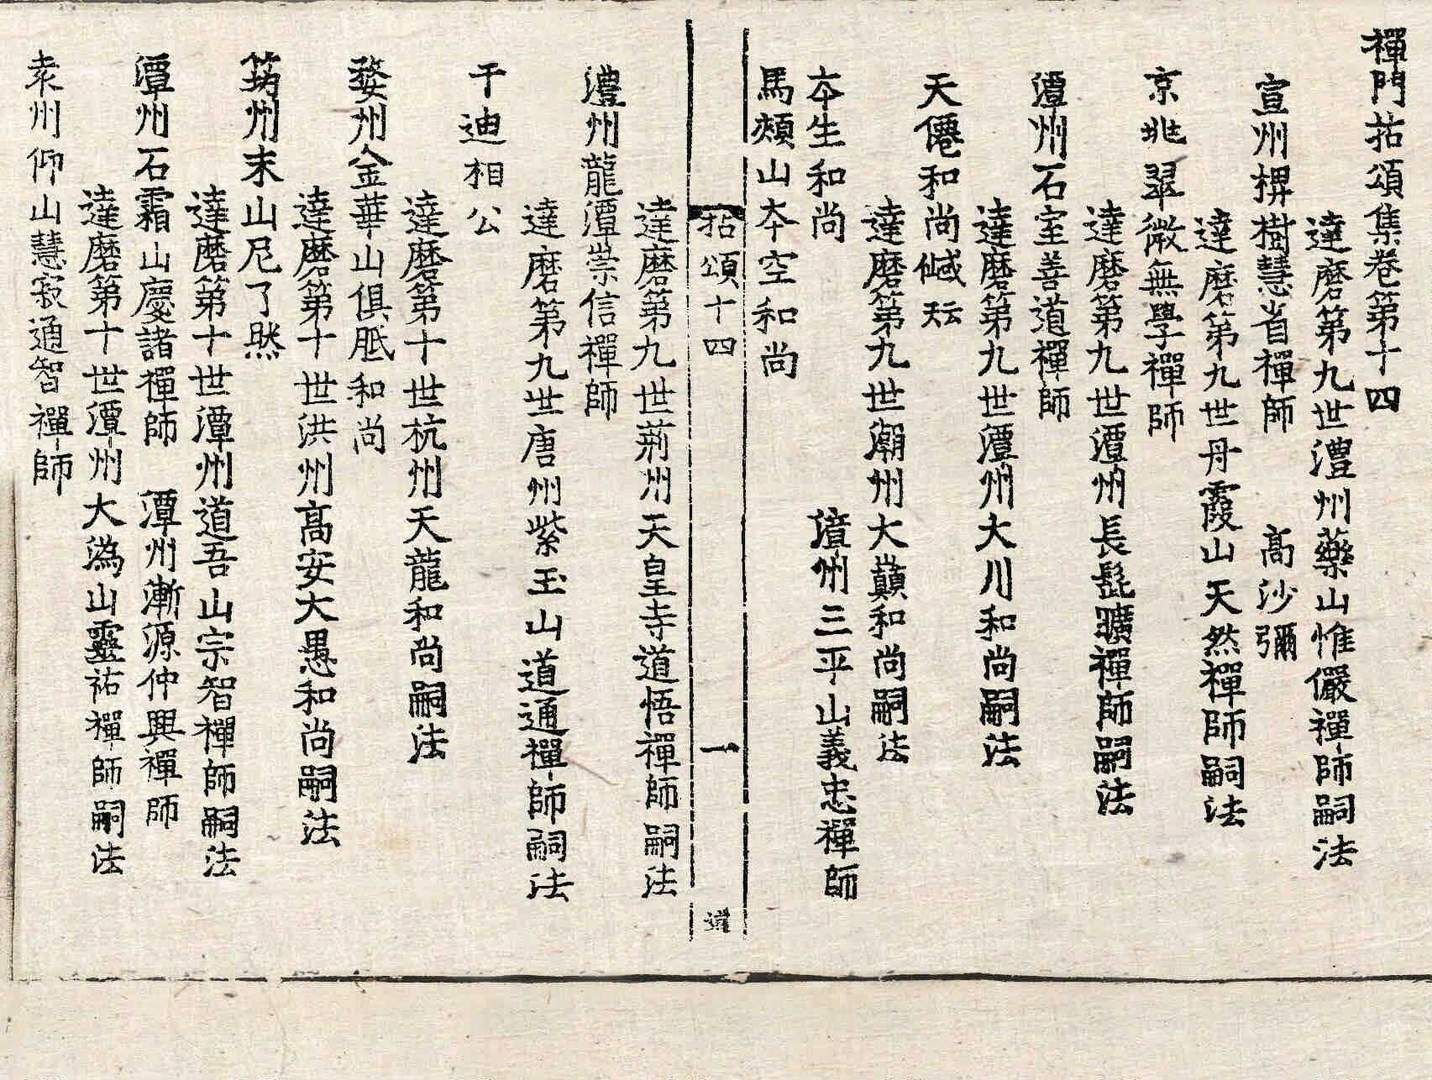 禪門拈頌集卷第十四
達磨第九世澧州藥山惟儼禪師嗣法
宣州椑樹慧省禪師 高沙彌
達磨第九世丹霞山天然禪師嗣法
京兆翠微無學禪師
達磨第九世潭州長髭曠禪師嗣法
潭州石室善道禪師
達磨第九世潭州大川和尚嗣法
天僊和尚
達磨第九世潮州大顚和尚嗣法
夲生和尚 漳州三平山義忠禪師
馬頰山夲空和尚
拈頌十四 一
達磨第九世荊州天皇寺道悟禪師嗣法
澧州龍潭崇信禪師
達磨第九世唐州紫玉山道通禪師嗣法
于迪相公
達磨第十世杭州天龍和尚嗣法
婺州金華山俱胝和尚
達磨第十世洪州高安大愚和尚嗣法
筠州末山尼了然
達磨第十世潭州道吾山宗智禪師嗣法
潭州石霜山慶諸禪師 潭州漸源仲興禪師
達磨第十世潭州大潙山靈祐禪師嗣法
袁州仰山慧寂通智禪師